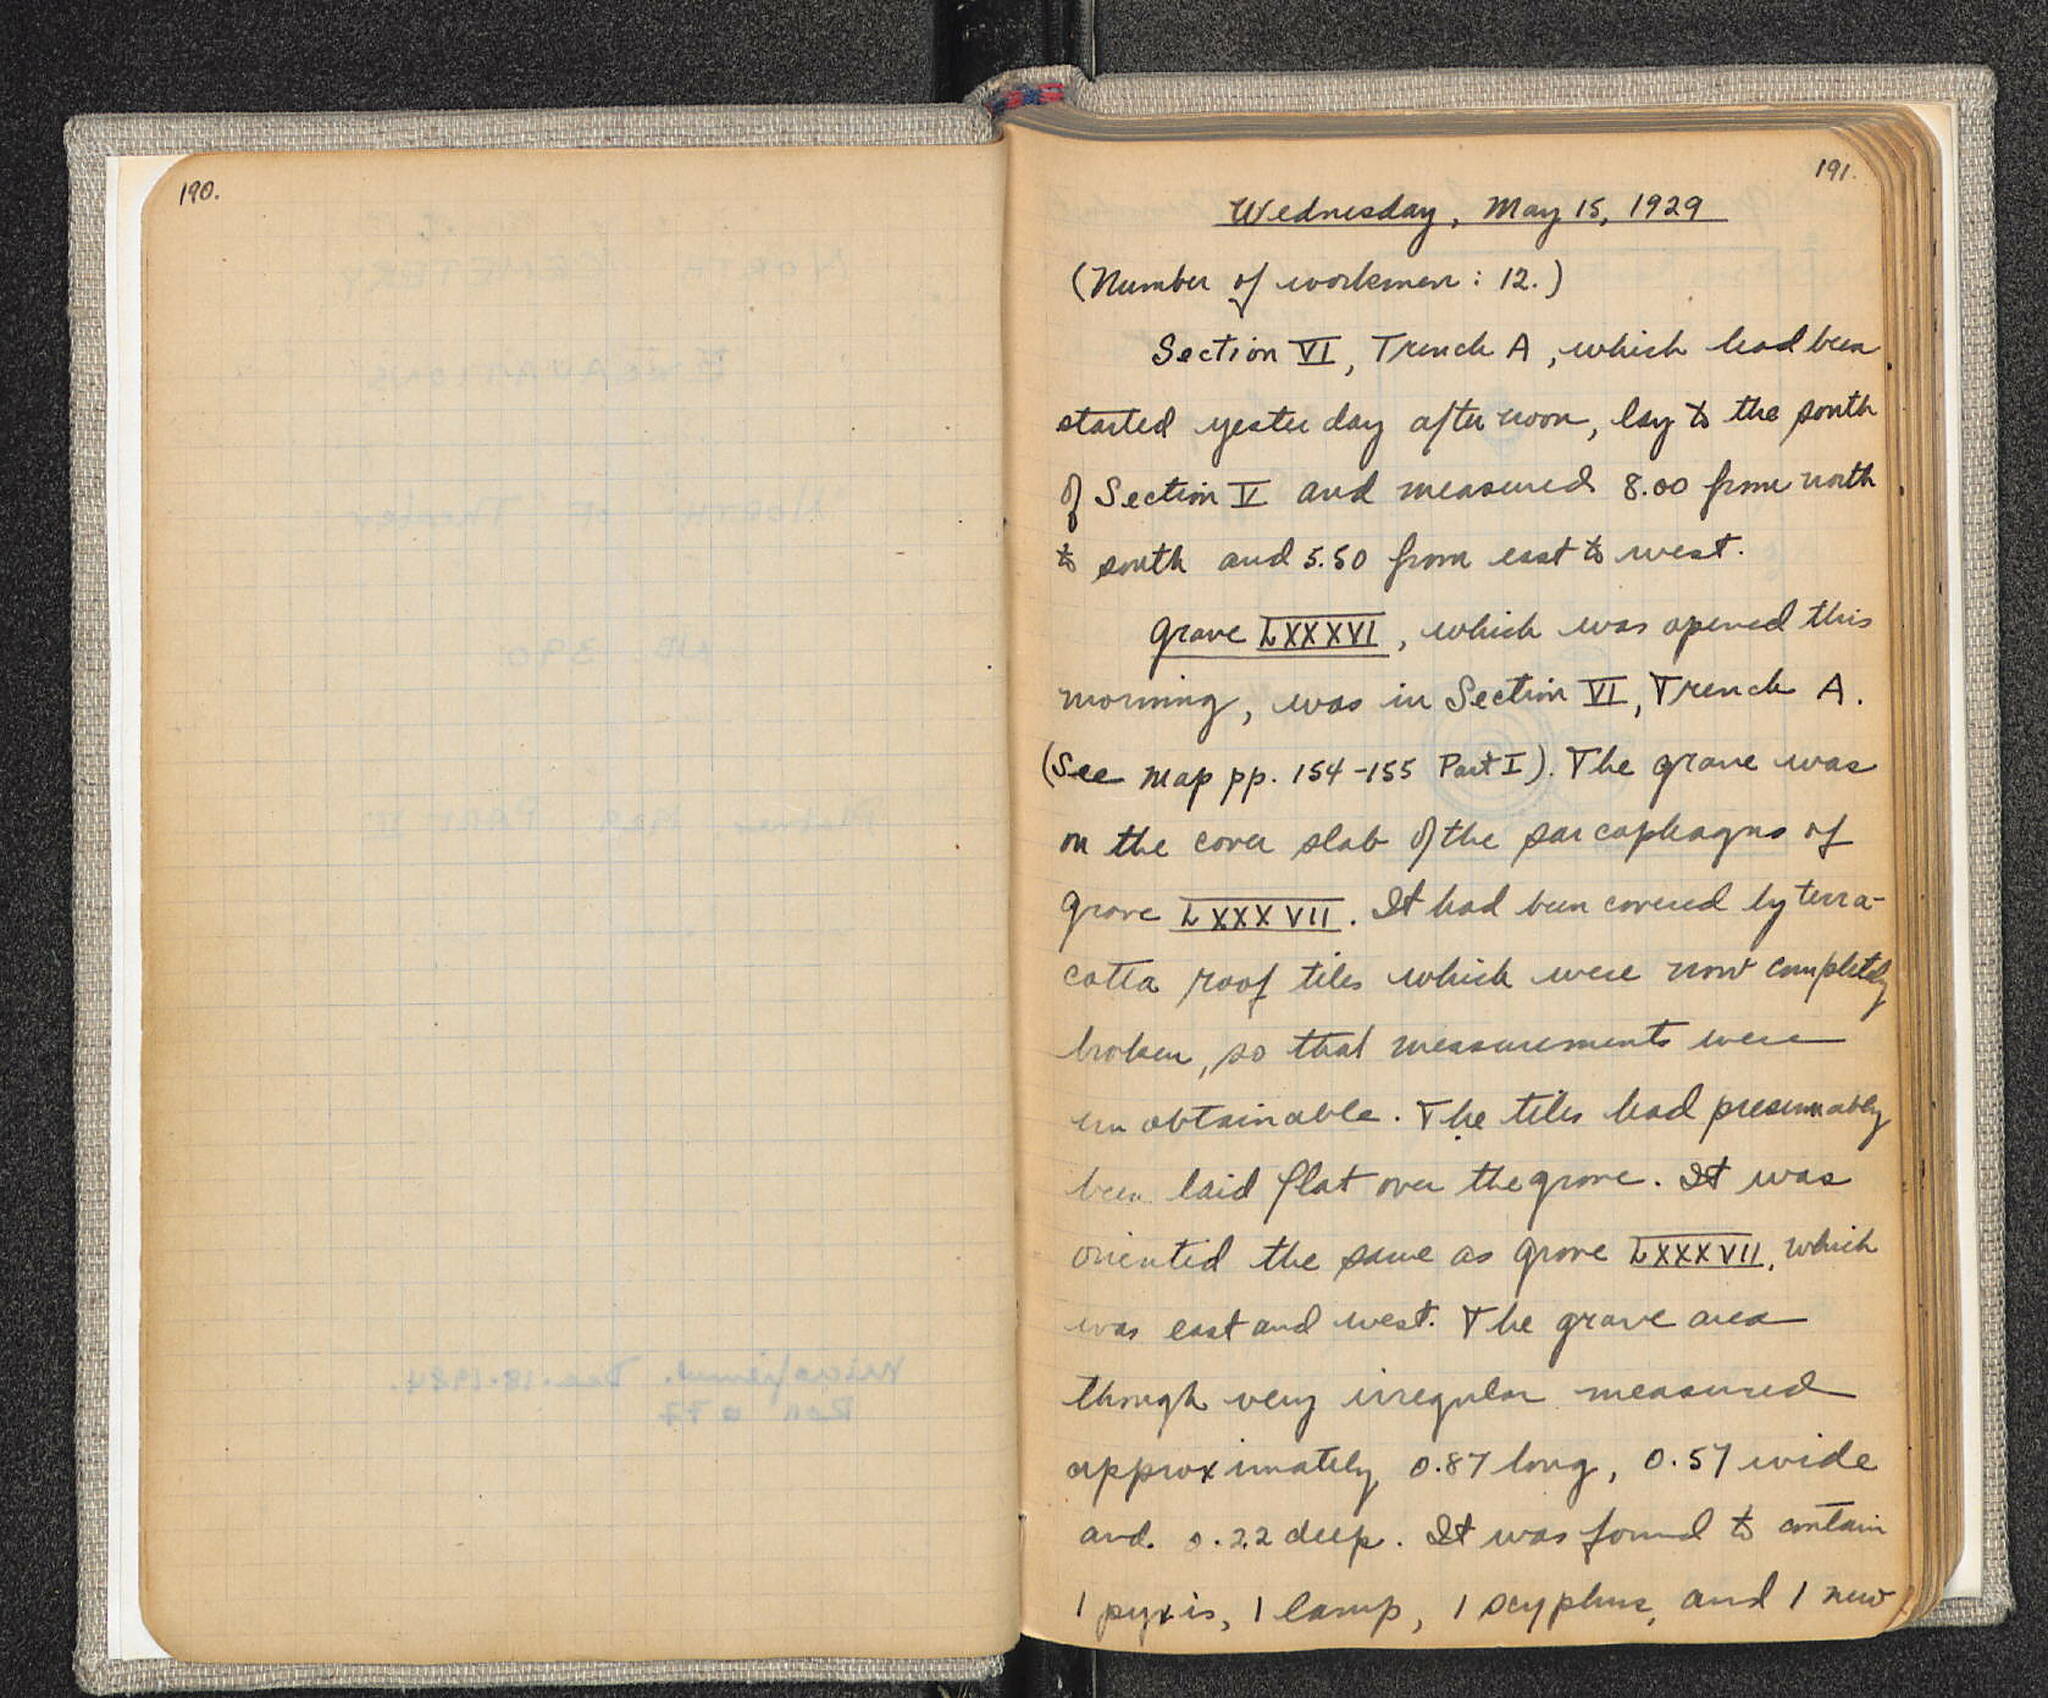 190.
191.
Wednesday, May 15, 1929
(Number of workmen: 12.)
Section VI, Trench A, which had been
started yesterday afternoon, lay to the south
of Section V and measured 8.00 from north
to south and 5.50 from east to west.
Grave LXXXVI, which was opened this
morning, was in Section VI, Trench A.
(See map pp. 154-155 Part I). The grave was
on the cover slab of the sarcophagus of
Grave LXXXVII. It had been covered by terra-
cotta roof tiles which were now completely
broken, so that measurements were
unobtainable. The tiles had presumably
been laid flat over the grave. It was
oriented the same as Grave LXXXVII, which
was east and west. The grave area
though very irregular measured
approximately 0.87 long, 0.57 wide
and 0.22 deep. It was found to contain
1 pyxis, 1 lamp, 1 scyphus, and 1 new